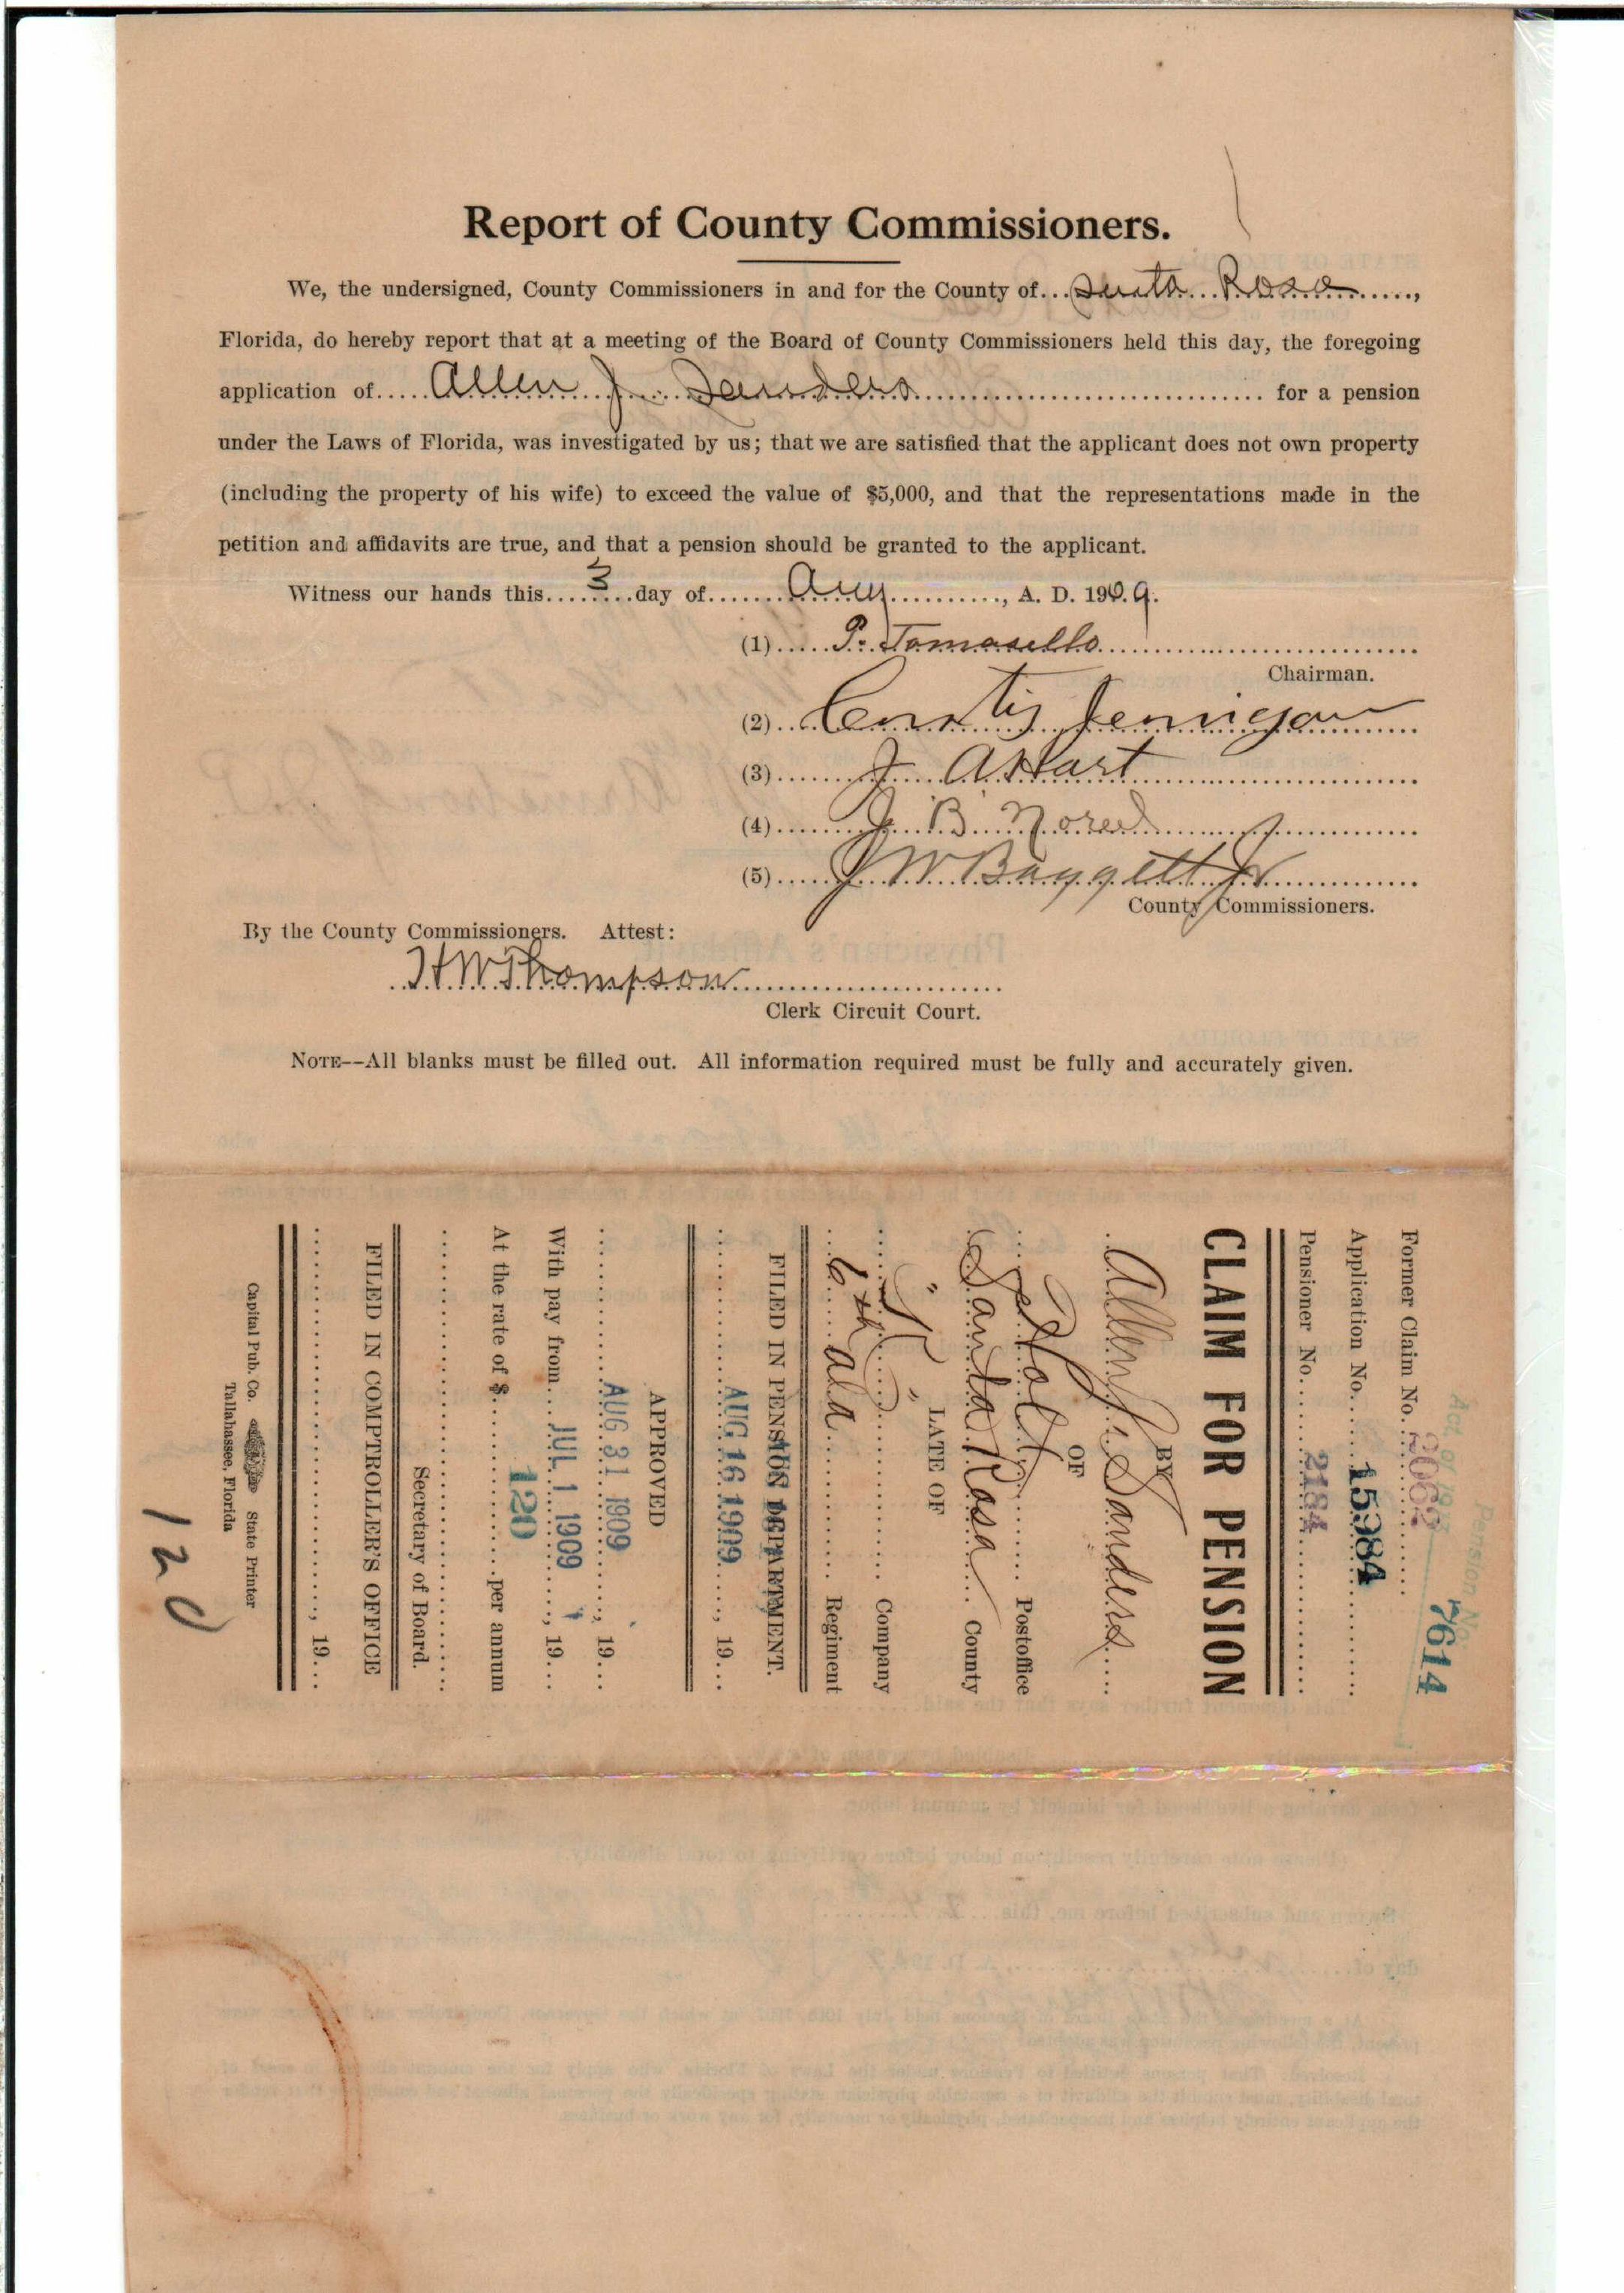 Report of County Commissioners.
We, the undersigned, County Commissioners in and for the County of...Santa Rosa.......,
Florida, do hereby report that at a meeting of the Board of County Commissioners held this day, the foregoing
application of.....Allen J. Sanders.......... for a pension
under the Laws of Florida, was investigated by us; that we are satisfied that the applicant does not own property
(including the property of his wife) to exceed the value of $5,000, and that the representations made in the
petition and affidavits are true, and that a pension should be granted to the applicant.
Witness our hands this....3....day of.......Aug.........., A. D. 1909.
(1).....P. Tomasello..........
Chairman.
(2)..Curtis Jernigan
(3)........J. A Hart..........
(4)........J. B. Nored..........
(5).....J W Baggett Jr..........
County Commissioners.
By the County Commissioners. Attest:
H W Thompson..........
Clerk Circuit Court.
NOTE--All blanks must be filled out. All information required must be fully and accurately given.
Act of 1913
Pension No.
7614
Former Claim No. 2062
Application No. 15384
Pensioner No. 2184
CLAIM FOR PENSION
BY
Allen J. Sanders
OF
Holt Postoffice
Santa Rosa County
LATE OF
" " Company
6th Ala Regiment
FILED IN PENSION DEPARTMENT.
AUG 16 1909, 19...
APPROVED
AUG 31 1909, 19...
With pay from JUL 1 1909, 19...
At the rate of $ 120 per annum
Secretary of Board.
FILED IN COMPTROLLER'S OFFICE
, 19...
Capital Pub. Co. State Printer
Tallahassee, Florida
120